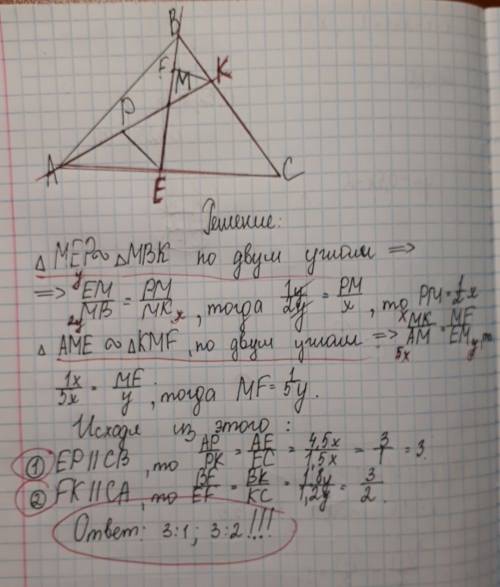 B
F
M
K
P
A
E
C
Решение:
△ MEP ~ △MBK по двум углам =>
=> EM/MB = PM/MK, тогда 1y/2y = PM/x, то PM = 1/2 x
y 2y x
△ AME ~ △KMF, по двум углам => MK/AM = MF/EM,
x 5x y
1x/5x = MF/y, тогда MF = 1/5 y.
Исходя из этого:
① EP||CB, то AP/PK = AE/EC = 4,5x/1,5x = 3/1 = 3
② FK||CA, то BF/EF = BK/KC = 1,8y/1,2y = 3/2.
Ответ: 3:1; 3:2!!!